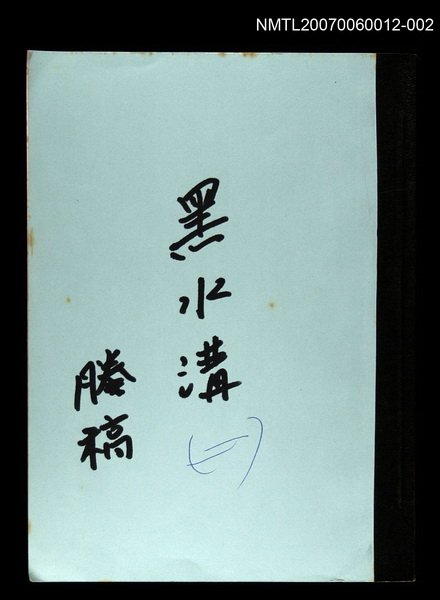 NMTL20070060012-002
黑水溝
(二)
謄稿